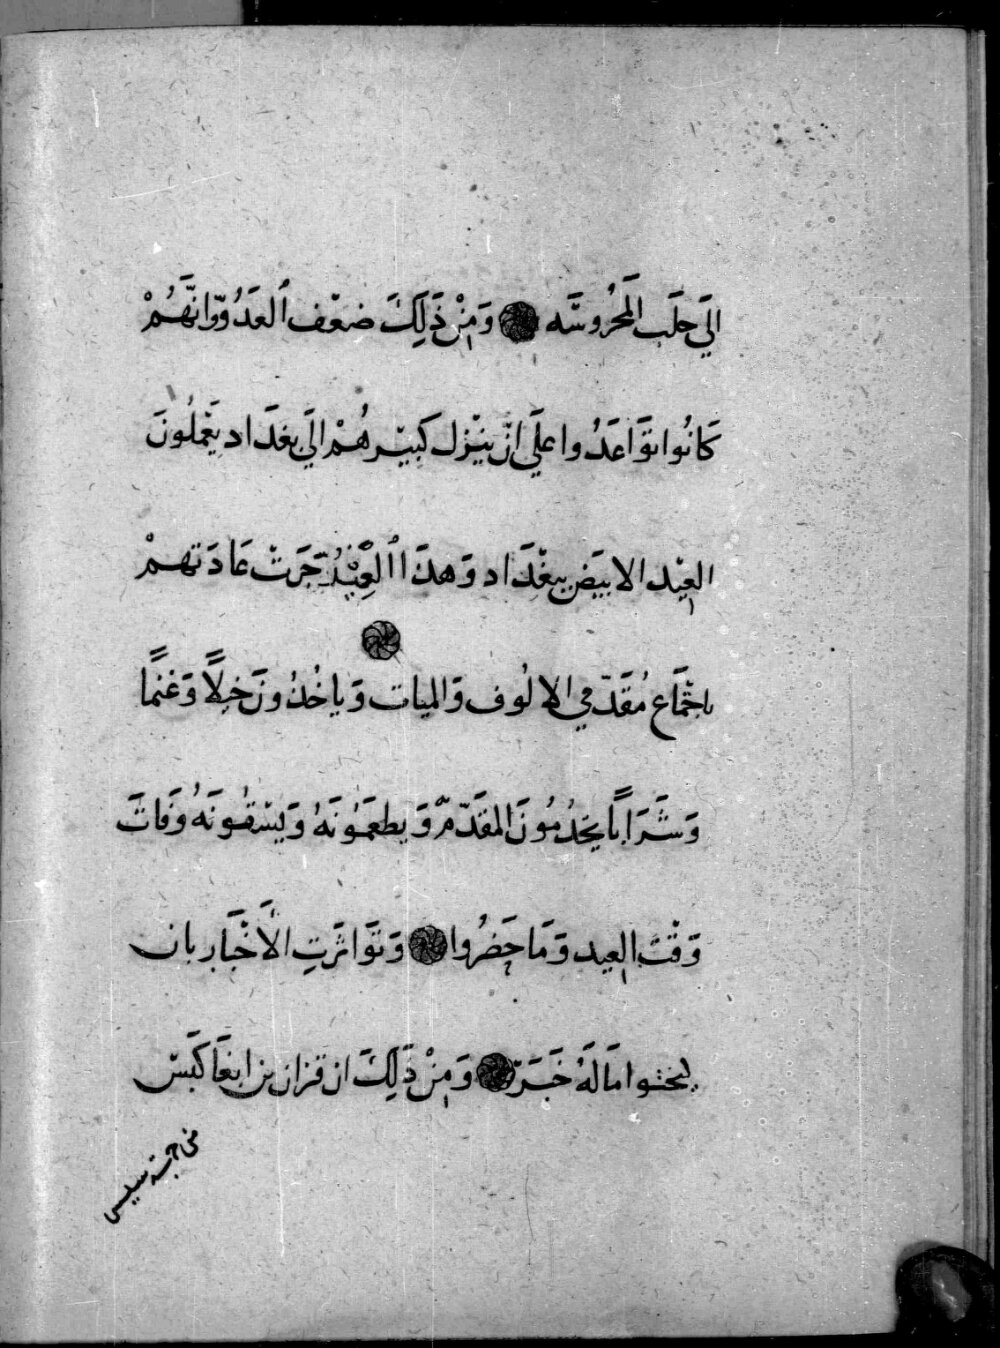 الَي حلَب المَحرُوسَه وَمِنْ ذَلِكَ ضعْف العَدُوّ وانَّهُمْ
كَانُوا تَوَاعَدُوا علَي انْ ينْزل كبيْرهُمْ الَي بغدَاد يَعْملُونَ
العيْد الابيَض ببغْدَاد وَهذَا العِيْدُ جَرَتْ عَادَتهمْ
باجْتمَاع مُقَدّمي الالُوف وَالميات وَياخُذُونَ خيلاً وَغنمًا
وَشَرَابًا يخدُمُونَ المقَدّمَ وَيطعَمُونَهُ وَيَسْقُونَهُ وَفَاتَ
وَقْتُ العيد وَمَا حَضرُوا وَتوَاتَرَتِ الأَخْبَار بان
امَا لَهُ خَبَرٌ وَمِنْ ذَلِكَ ان قزان بن ابغَا كَبَسَ